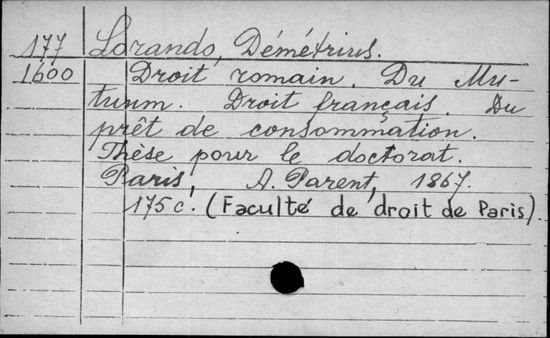 177 Lorando, Démétrius.
1600 Droit romain. Du Mu-
tuum. Droit français. Du
prêt de consommation.
Thèse pour le doctorat.
Paris, A. Parent, 1867.
175 c. (Faculté de droit de Paris).